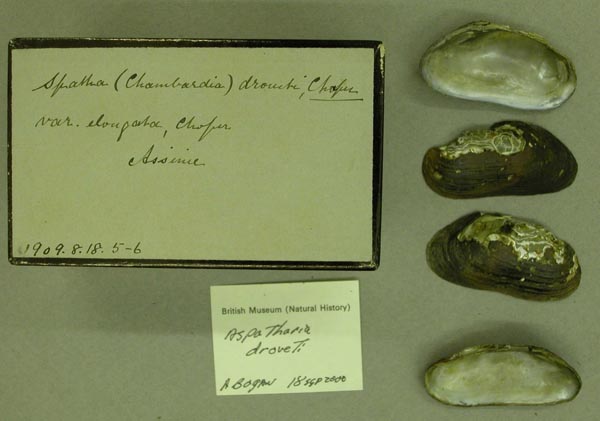 Spatha (Chambardia) droueti, Chaper
var. elongata, Chaper
Assinie
1909.8.18.5-6
British Museum (Natural History)
Aspatharia
droveTi
A BOGAN 18 SEP 2000